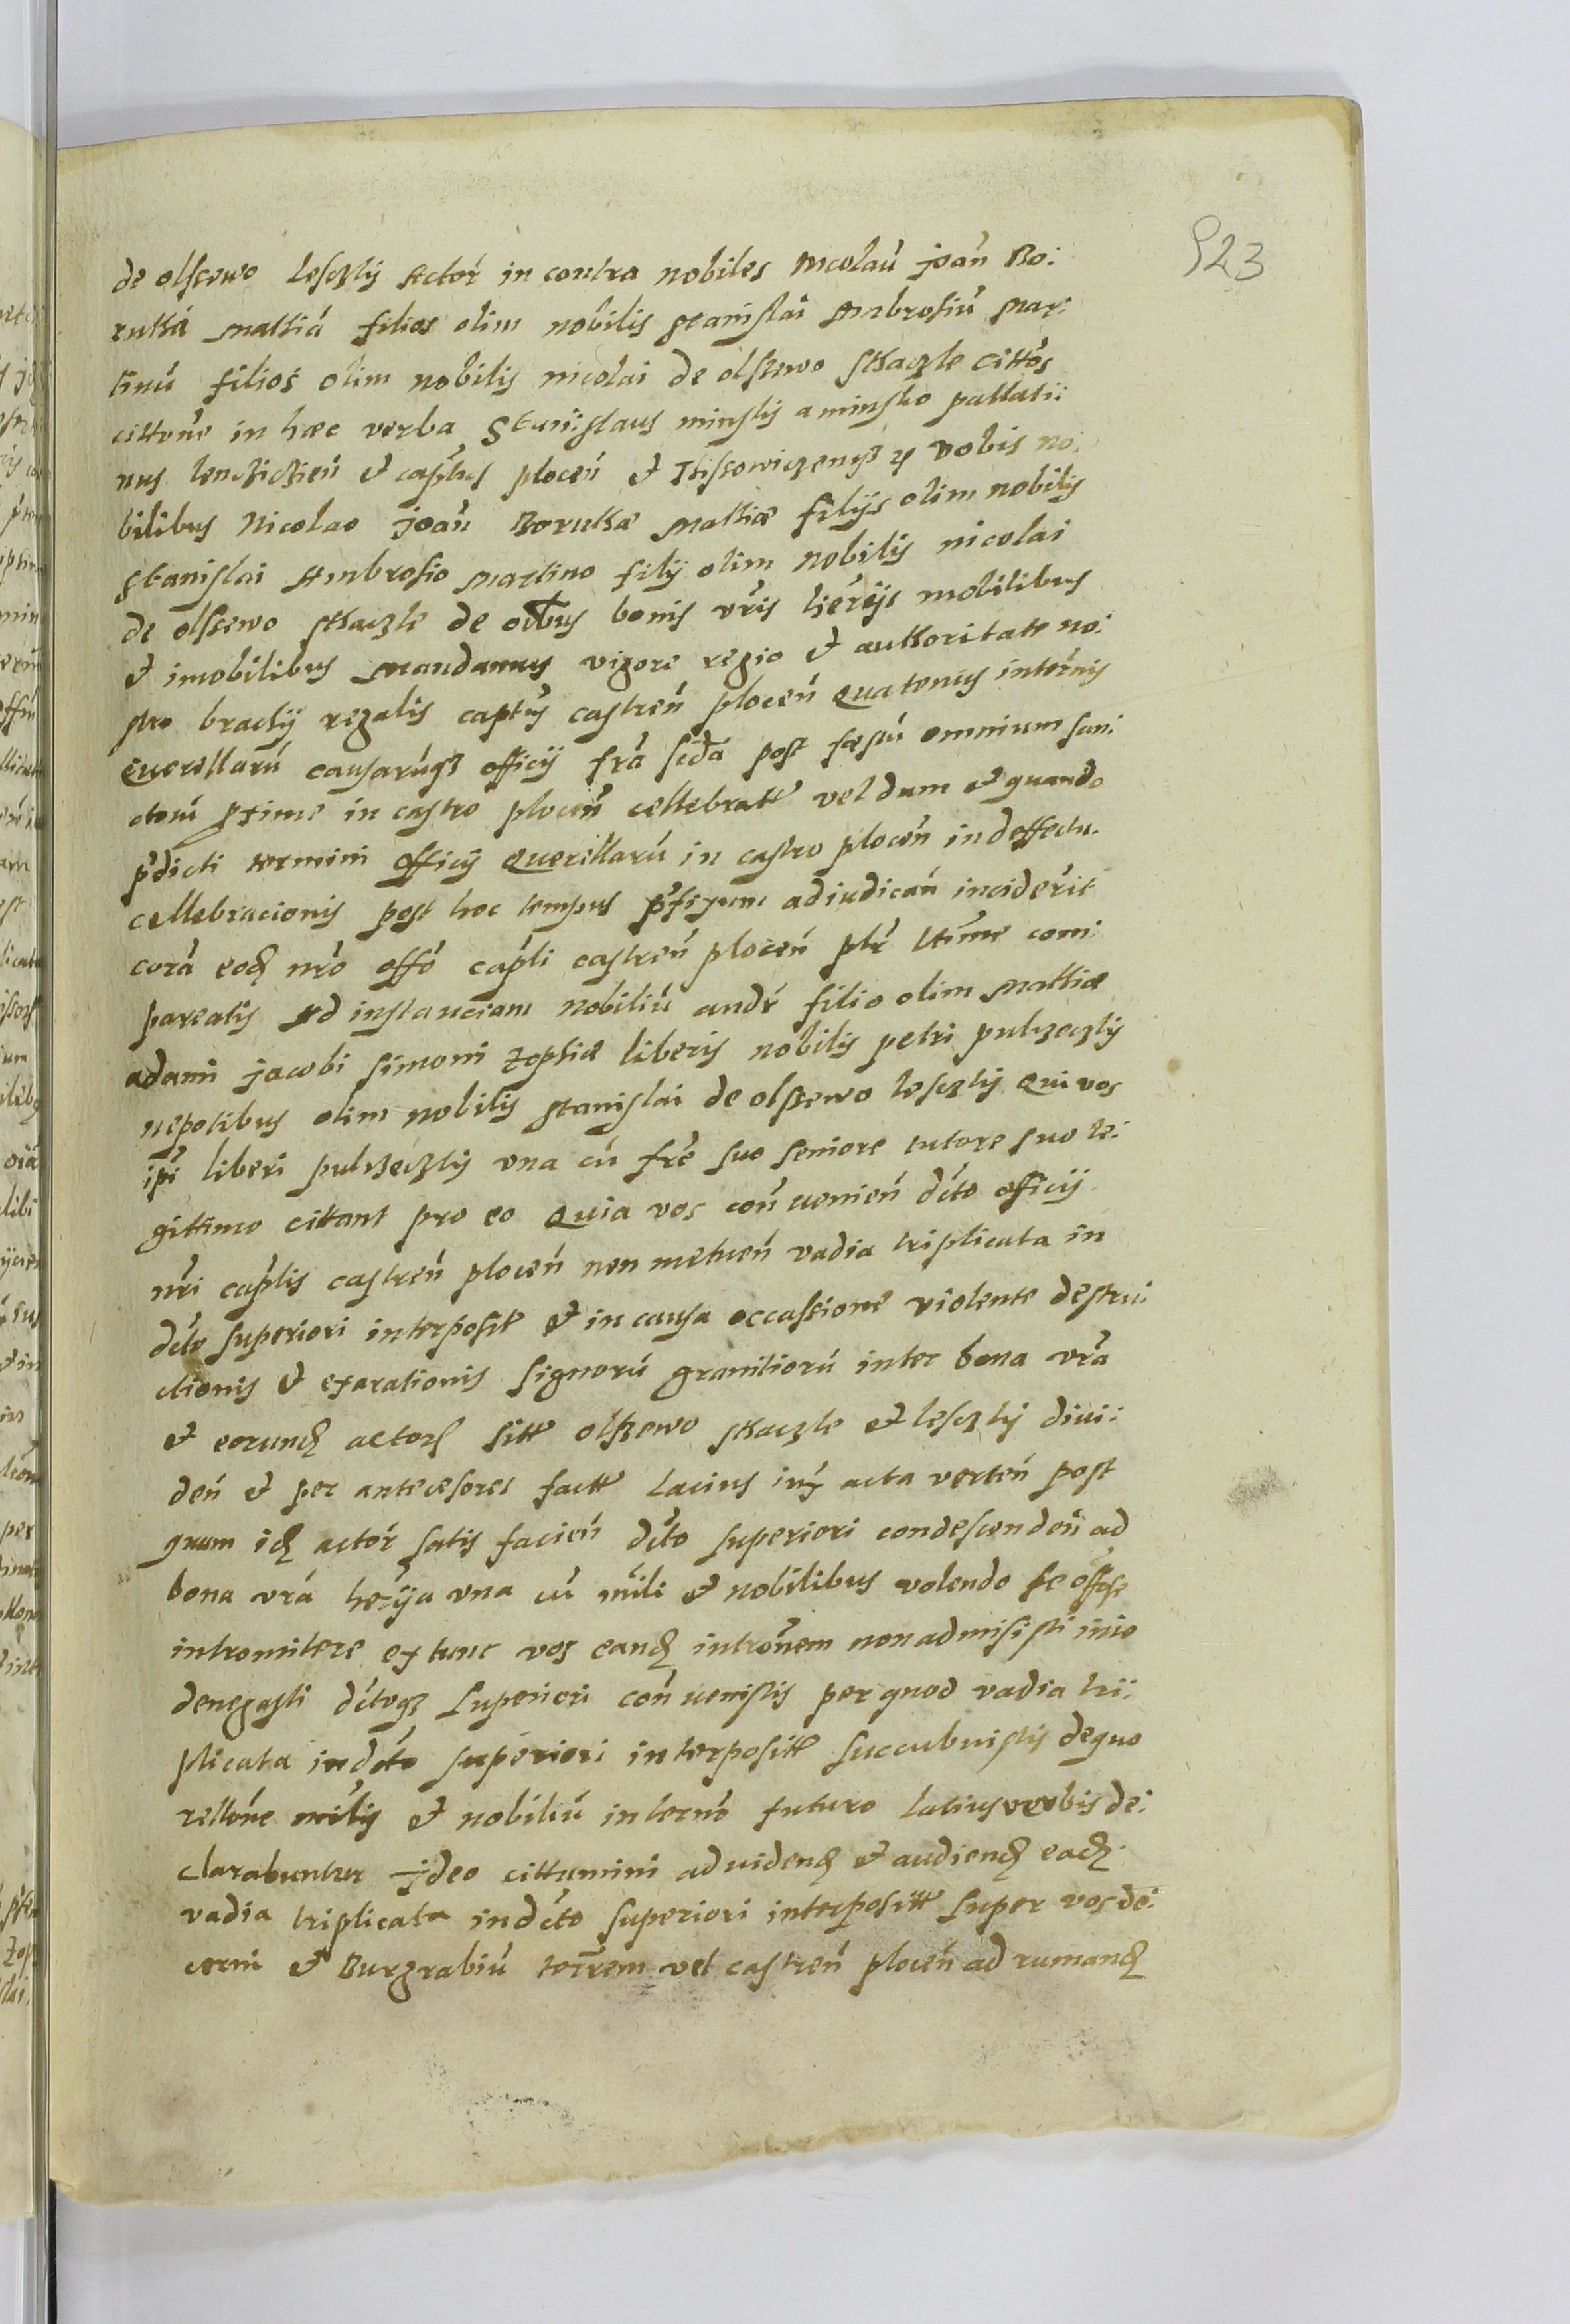 523
de olscewo lesczky Actor in contra nobiles nicolaū joan̄ Bo:
rutha mathia filios olim nobilis stanislai Ambrosiū mar:
tinu filios olim nobilis nicolai de olszewo sthaczle cittos
cittone in hæc verba Stanislaus minsky a minsko pallati:
nus lenczicien̄ et capttus plocen̄ et vobis no:
bilibus Nicolao joan̄ Boruthæ mathiæ filijs olim nobilis
Stanislai Ambrosio martino filij olim nobilis nicolai
de olscewo sthaczle de oībus bonis vris hereijs mobilibus
et imobilibus mandamus vigore regio et authoritate no:
stro brachij regalis captus castren̄ plocen̄ quatenus in ternis
querellarū causarūqȝ officij fra scda post fæstū omnium san:
ctorū pxime in castro plocen̄ cellebratt vel dum et quando
pdicti termini officij querellarū in castro plocen̄ in deffectu
cellebracionis post hoc tempus pfixum adiudican̄ inciderit
corā eodȝ nro offo capli castren̄ plocen̄ ptr ltime com:
pareatis Ad instanciam nobiliū andr filio olim mathiæ
adami jacobi simoni zophiæ liberis nobilis petri pulzeczky
nepotibus olim nobilis stanislai de olszewo lesczky qui vos
ipi liberi pulczeczky vna cū fre suo seniore tutore suo le:
gittimo cittant pro eo quia vos con uenien̄ dcto officij
nri caplis castren̄ plocen̄ non metuen̄ vadia triplicata in
dcto superiori interpositt et in causa occassione violente destru:
ctionis et exarationis signorū granitiorū inter bona vra
et eorundȝ actorȝ sitt olszewo sthaczle et lesczky diui:
den̄ et per antecesores factt Lacius iux acta verten̄ post
quam idȝ actor satis facien̄ dcto superiori condescenden̄ ad
bona vra herija vna cū mili et nobilibus volendo se
intromitere ex tunc vos eandȝ intronem non admisisti imo
denegasti dctoqȝ superiori con uenistis per quod vadia tri:
plicata in dcto superiori interpositt succubuistis de quo
rellone milis et nobiliū in terno futuro latius verbis de:
clarabuntur jdeo cittamini ad videndȝ et audiendȝ eadȝ
vadia triplicata in dcto superiori interpositt super vos de:
cerni et Burgrabiū terrem vel castren̄ plocen̄ ad rumandȝ